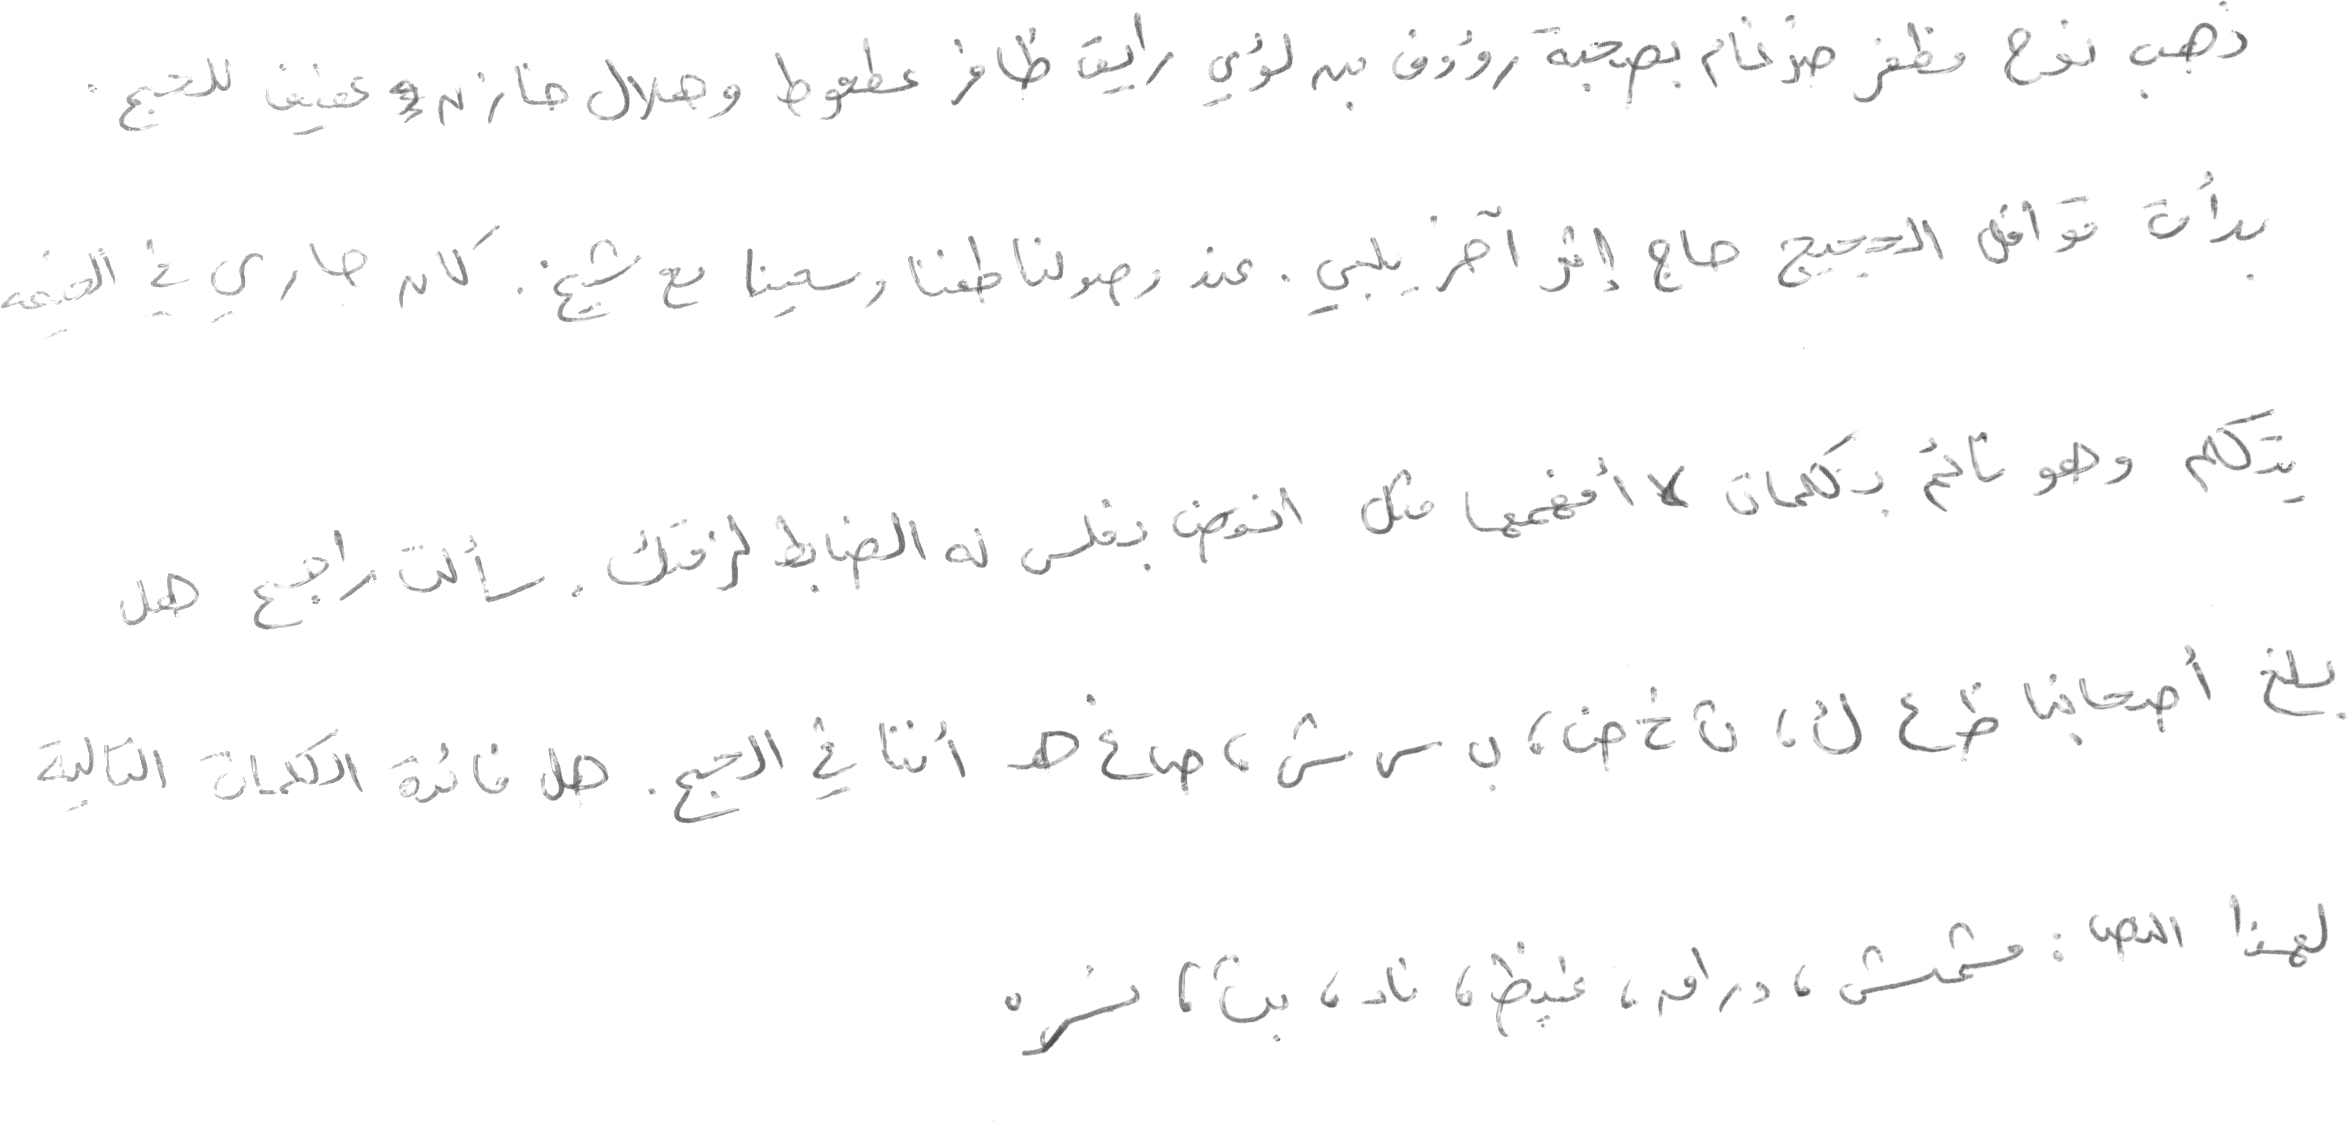 ذهب نوح مظفر ضرغام بصحبة رؤوف بن لؤي رايق ظافر عطعوط وهلال خازن و عفيف للحج .
بدأت قوافل الحجيج حاج إثر آخر يلبي . عند وصولنا طفنا وسعينا مع شيخ . كان جاري في الغرفة
يتكلم وهو نائم بكلمات لا أفهمها مثل انوض بغلس نه الضابط لزقك . سألت راجح هل
بلغ أصحابنا ظ ع ل ، ث خ ض ، ب س ش ، ص غ هـ أننا في الحج . هل فائدة الكلمات التالية
لهذا النص : مشمش ، دراق ، غيظ ، ناد ، بث ، نسره